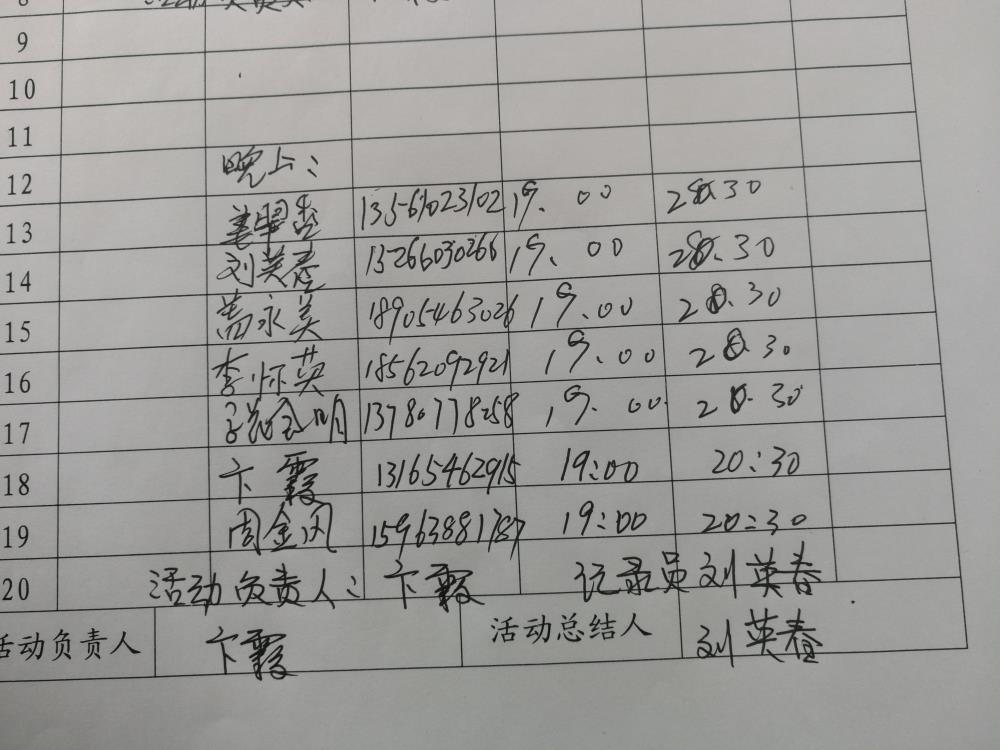 8 负责人
9
10
11
12 晚上：
13 13561023102 19.00 20.30
14 刘英春 13266030266 19.00 20.30
15 盖永美 18905463026 19.00 20.30
16 李怀英 18562092921 19.00 20.30
17 金明 13780778258 19.00 20.30
18 卞霞 13165462915 19:00 20:30
19 周金凤 15963881787 19:00 20:30
20 活动负责人：卞霞 记录员刘英春
活动负责人 卞霞 活动总结人 刘英春